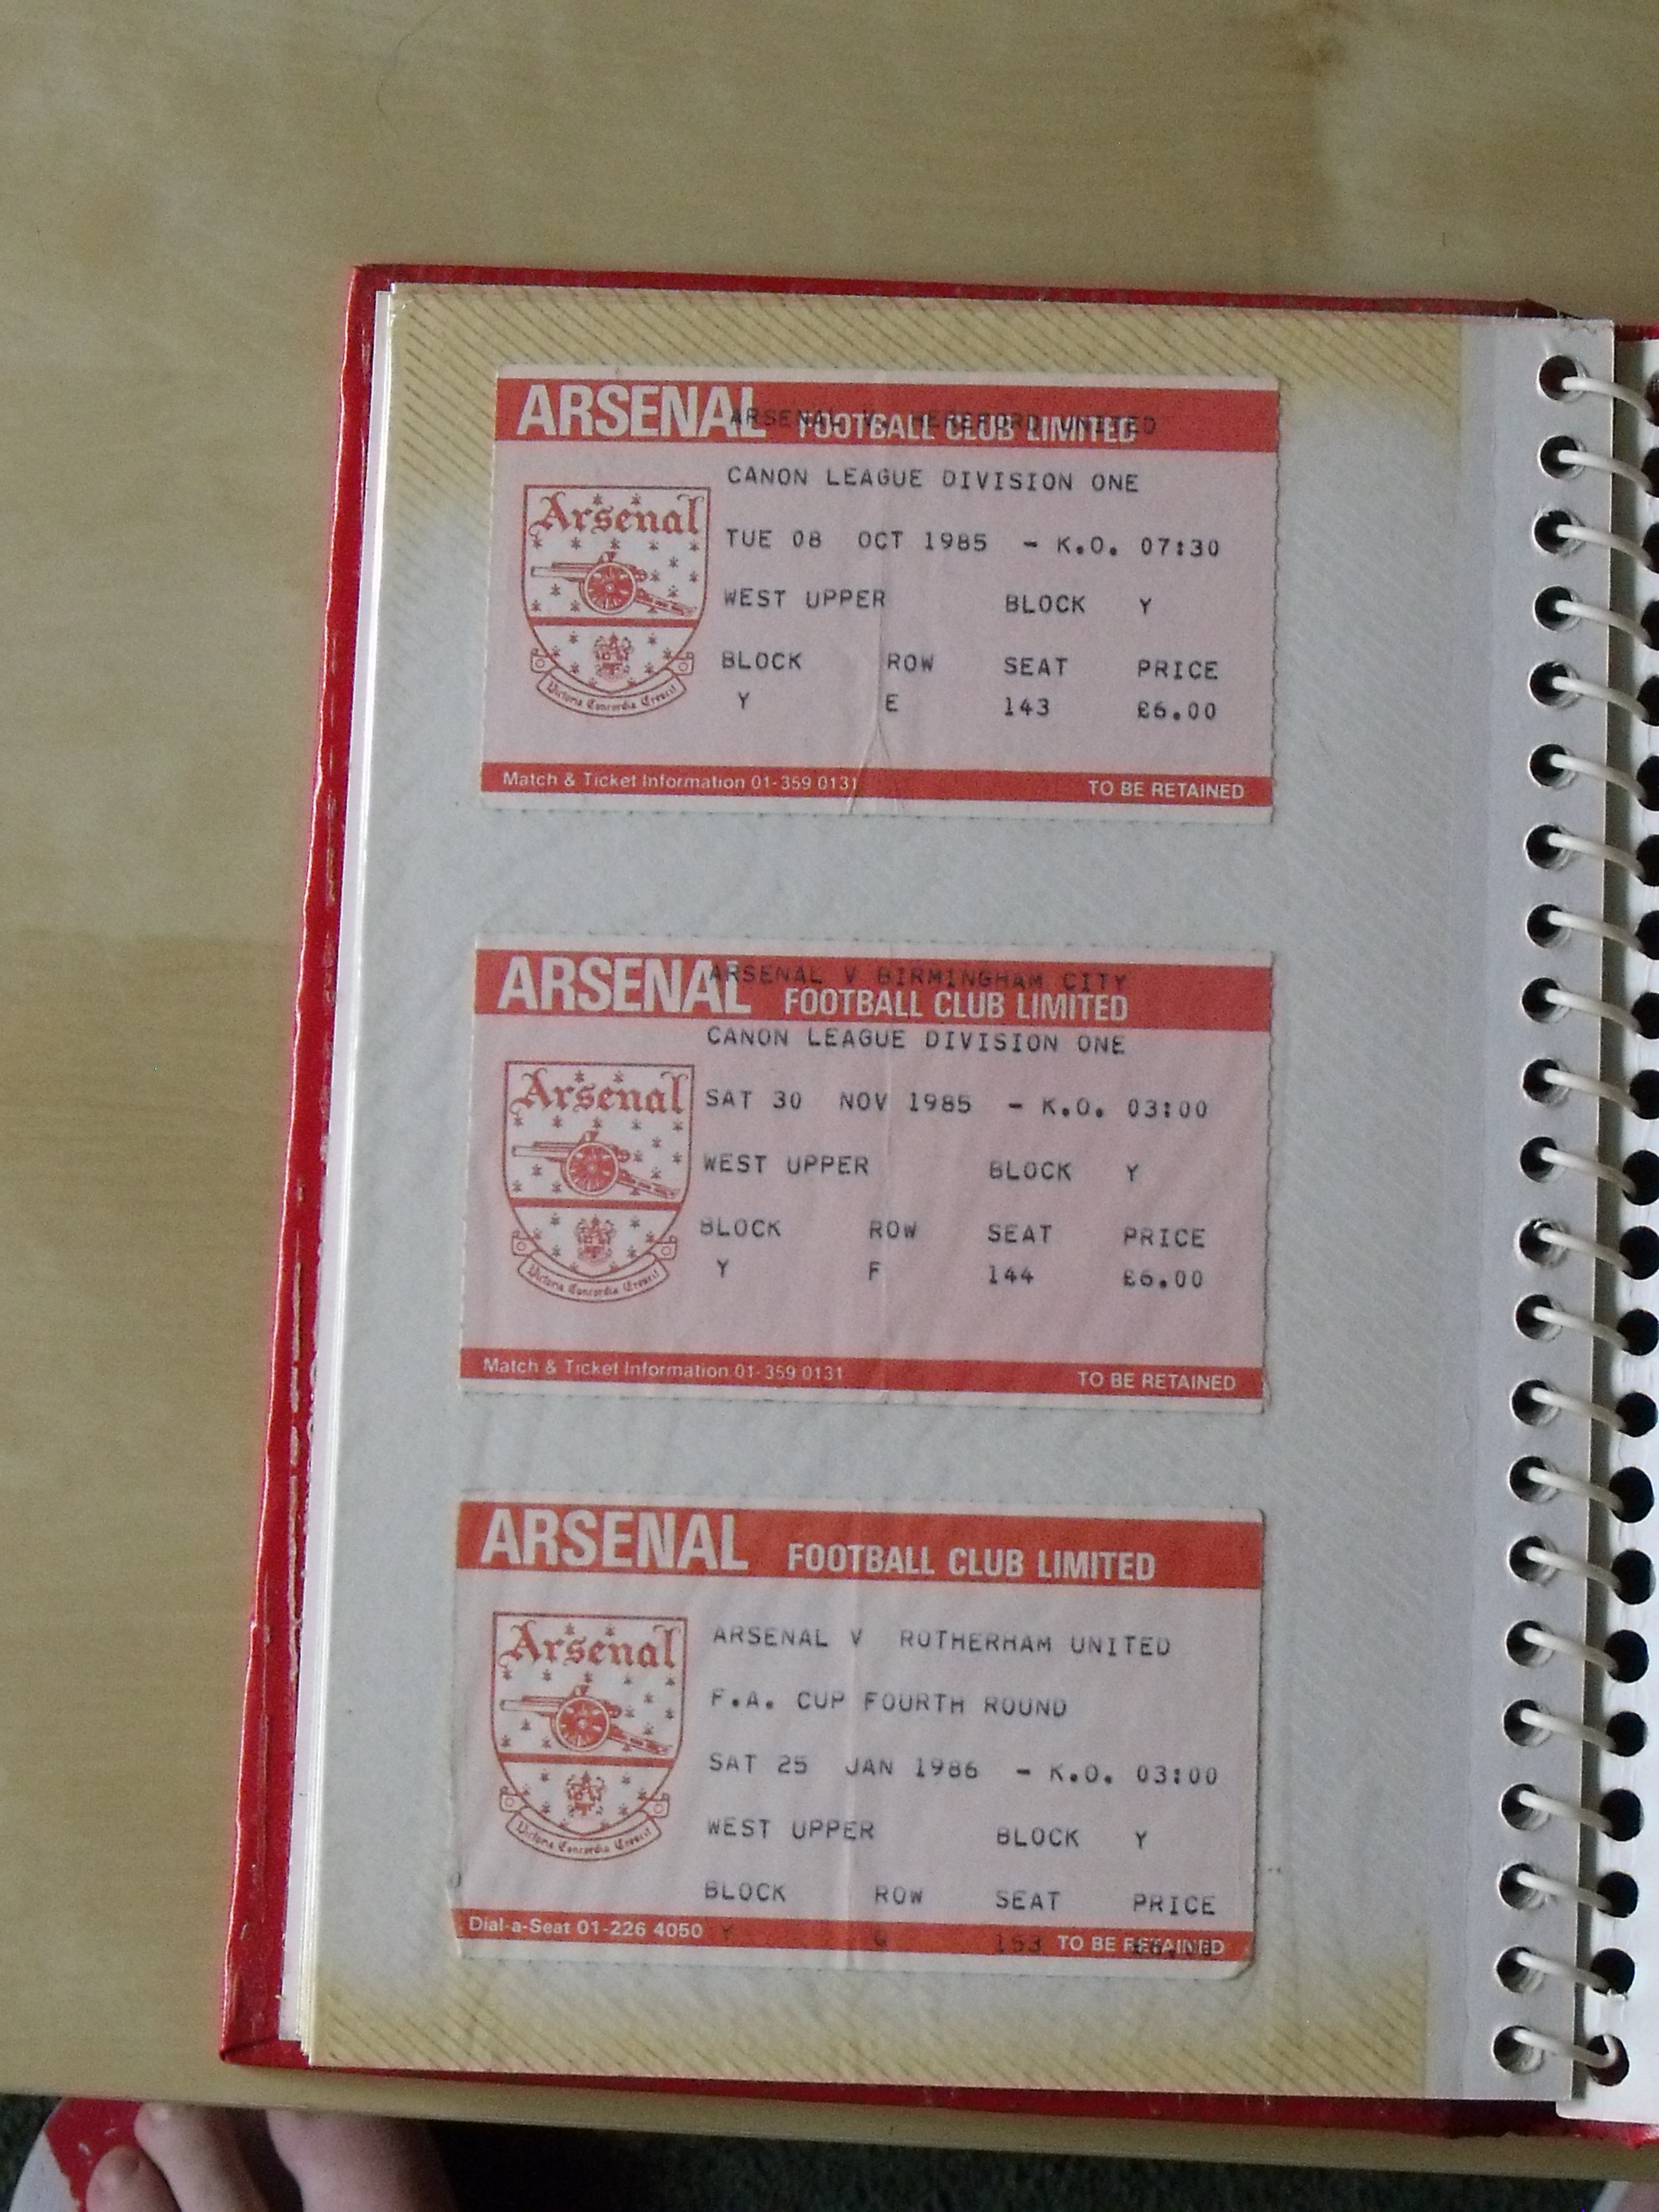 ARSENAL FOOTBALL CLUB LIMITED
ARSENAL V HEREFORD UNITED
CANON LEAGUE DIVISION ONE
Arsenal
TUE 08 OCT 1985 - K.O. 07:30
WEST UPPER BLOCK Y
BLOCK ROW SEAT PRICE
Y E 143 £6.00
Victoria Concordia Crescit
Match & Ticket Information 01-359 0131 TO BE RETAINED
ARSENAL FOOTBALL CLUB LIMITED
ARSENAL V BIRMINGHAM CITY
CANON LEAGUE DIVISION ONE
Arsenal
SAT 30 NOV 1985 - K.O. 03:00
WEST UPPER BLOCK Y
BLOCK ROW SEAT PRICE
Y F 144 £6.00
Victoria Concordia Crescit
Match & Ticket Information 01-359 0131 TO BE RETAINED
ARSENAL FOOTBALL CLUB LIMITED
ARSENAL V ROTHERHAM UNITED
Arsenal
F.A. CUP FOURTH ROUND
SAT 25 JAN 1986 - K.O. 03:00
WEST UPPER BLOCK Y
Victoria Concordia Crescit
BLOCK ROW SEAT PRICE
Y G 153
Dial-a-Seat 01-226 4050 TO BE RETAINED